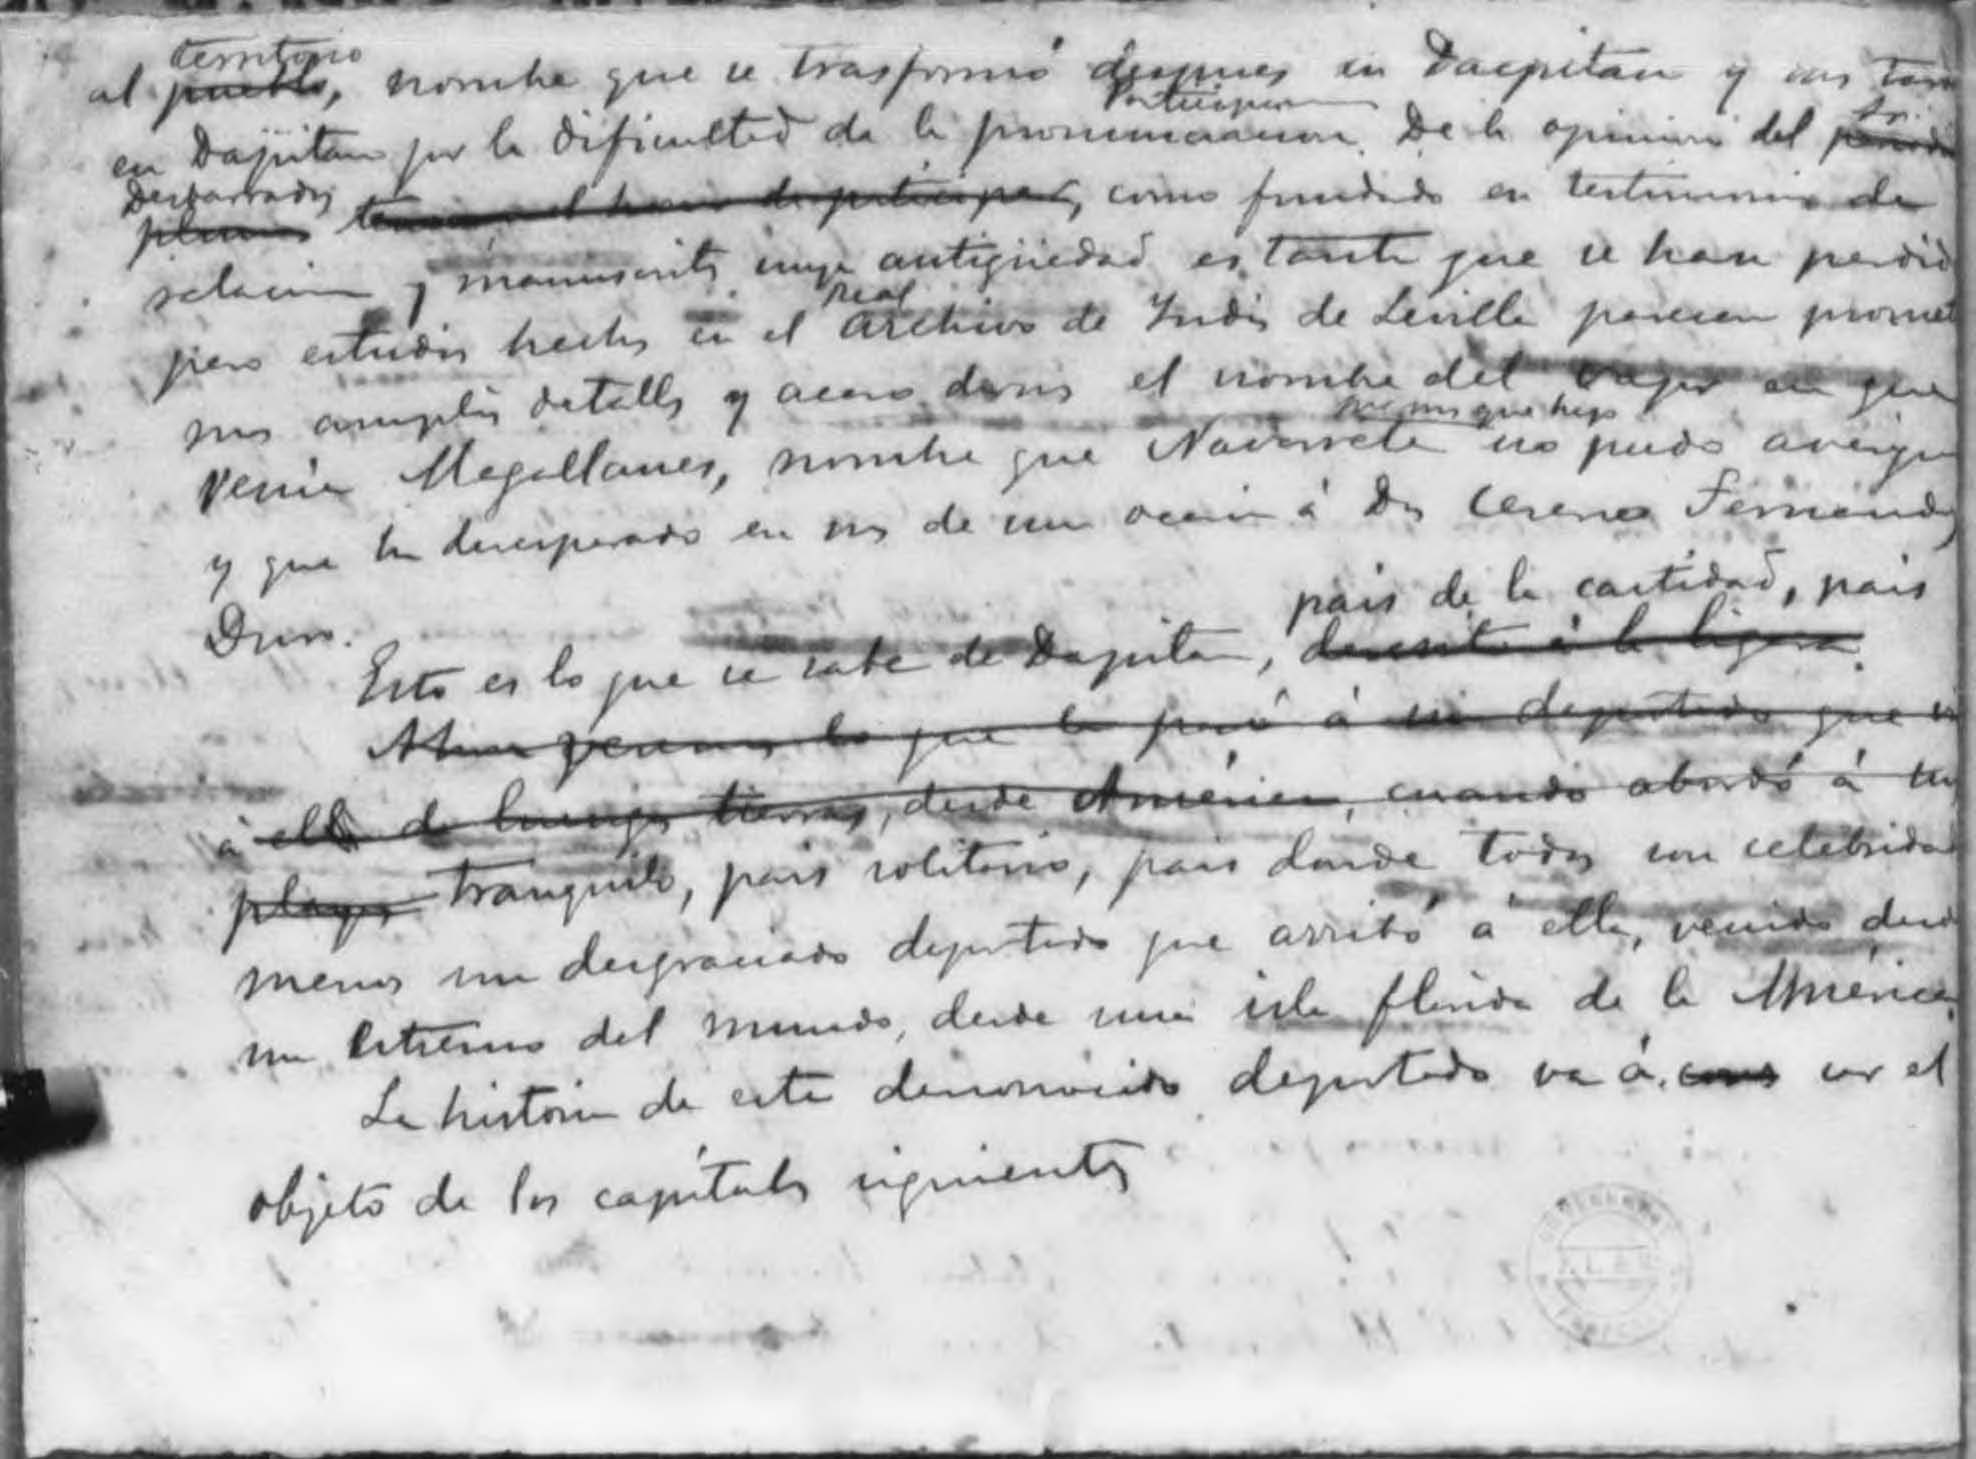 territorio
al pueblo, nombre que se trasformó despues en Dacpitan y mas
Participan
en Dapitan por la dificultad de la pronunciacion. De la opinion del
Desbarrados
como fundado en testimonios de
relacion y manuscritos cuya antigüedad es tanta que se han perdido
Real
pero estudios hechos en el archivo de Indias de Sevilla parecen
mas amplios detalles y acaso darnos el nombre del vapor en que
por mas que hizo
venia Magallanes, nombre que Navarrete no pudo
y que ha desesperado en mas de una ocasion á Dn Cesareo
Duro.
pais de la castidad, pais
Esto es lo que se sabe de Dapitan, descrito á la ligera.
Ahora veamos lo que le pasó á un deportado que
á ella de luengas tierras, desde América, cuando abordó á sus
playas tranquilo, pais solitario, pais donde todos son
menos un desgraciado deportado que arribó á ella, venido
un extremo del mundo, desde una isla florida de la América.
La historia de este desconocido deportado va á ser el
objeto de los capítulos siguientes